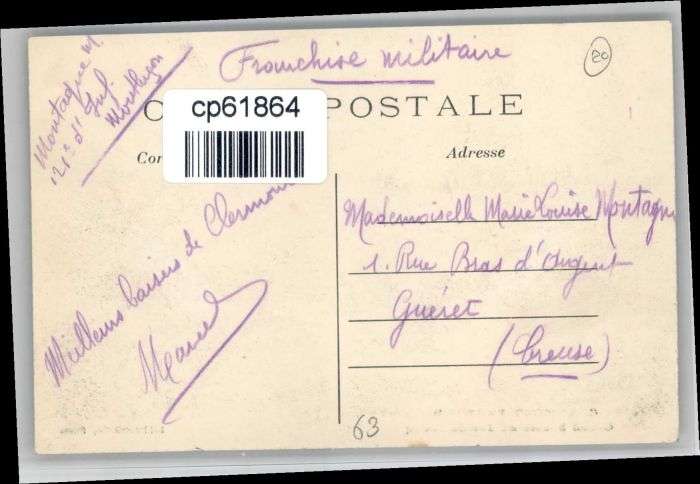 Franchise militaire
20
Montagne M.
121e d'Inf.
Montluçon
cp61864
POSTALE
Adresse
Meilleurs baisers de Clermont
Marcel
Mademoiselle Marie Louise Montagne
1. Rue Bras d'Argent
Guéret
(Creuse)
63